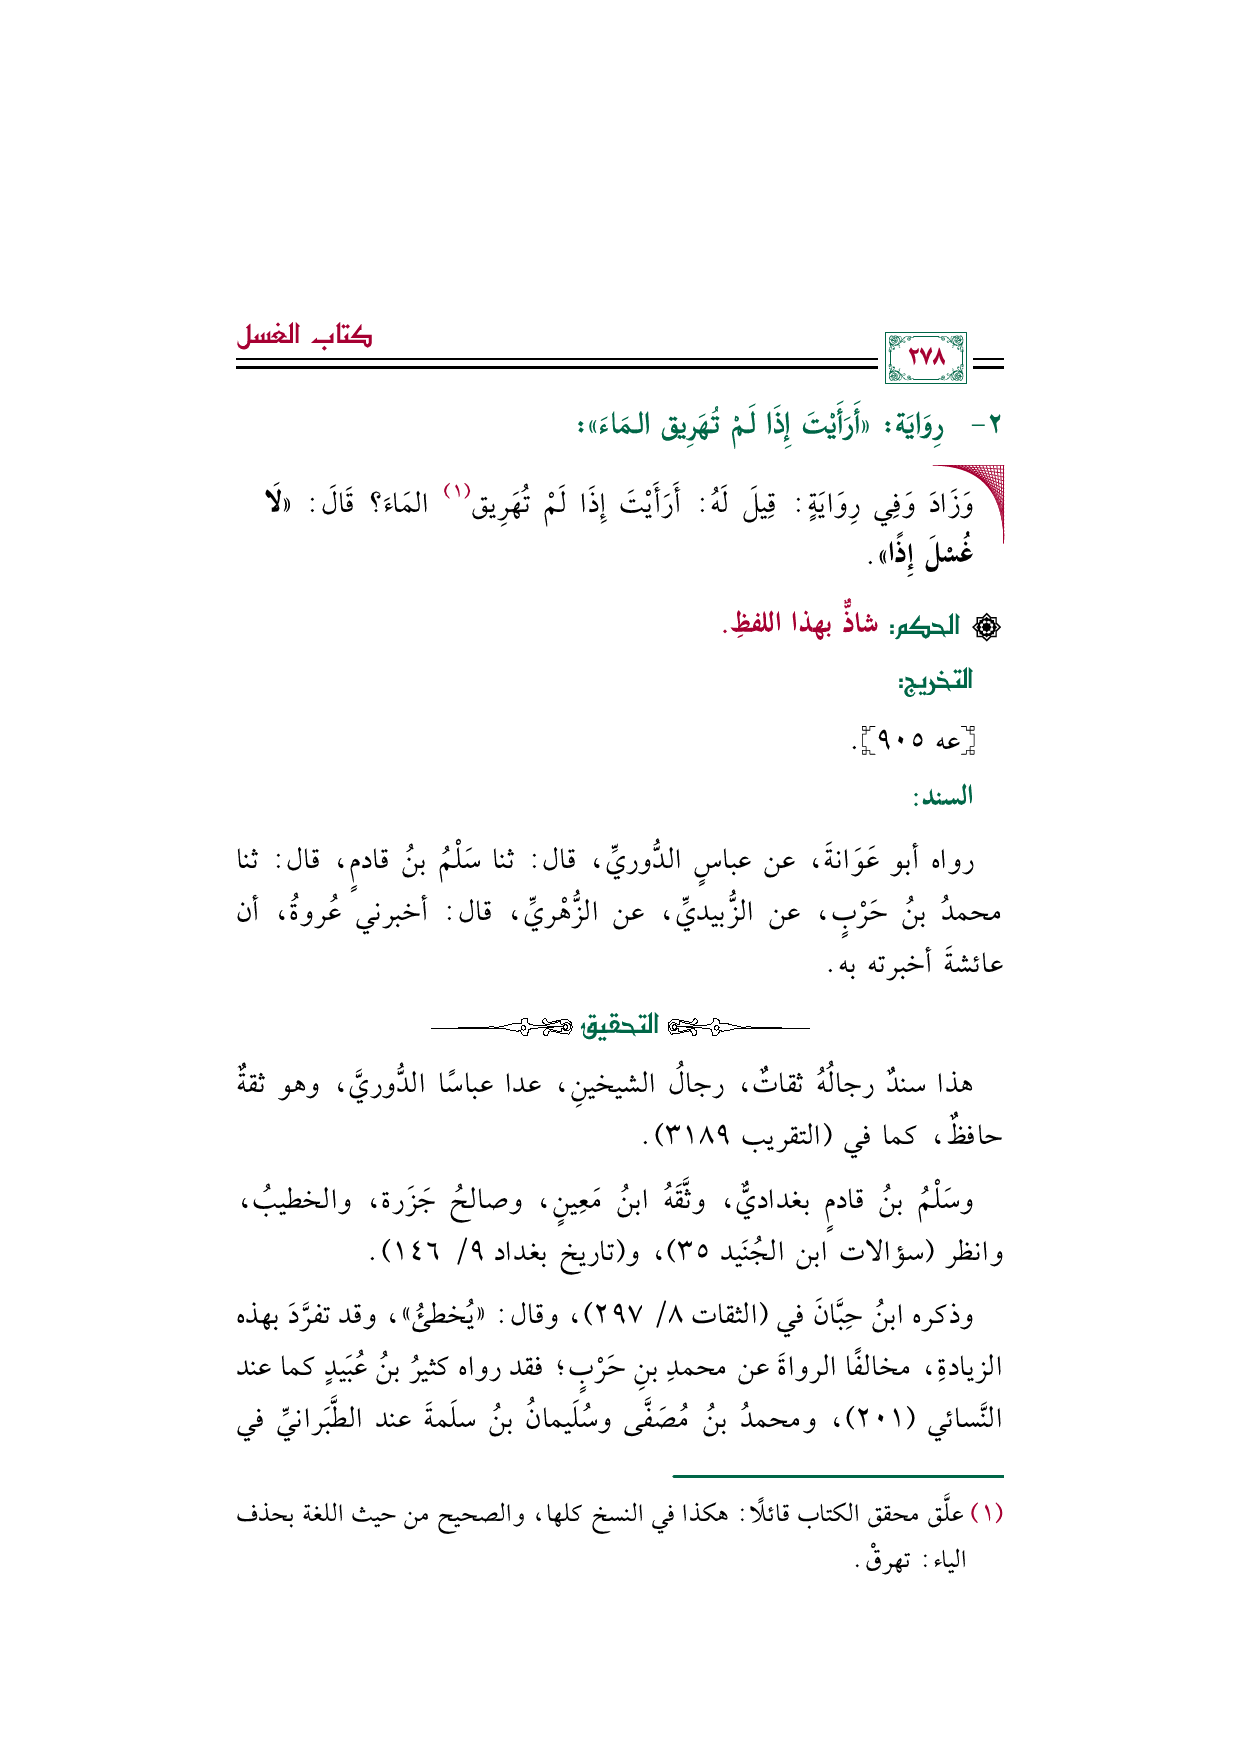 كتاب الغسل
٢٧٨
٢- رِوَايَة: «أَرَأَيْتَ إِذَا لَمْ تُهَرِيق المَاءَ»:
وَزَادَ وَفِي رِوَايَةٍ: قِيلَ لَهُ: أَرَأَيْتَ إِذَا لَمْ تُهَرِيق(١) المَاءَ؟ قَالَ: «لَا
غُسْلَ إِذًا».
الحكم: شاذٌّ بهذا اللفظِ.
التخريج:
[عه ٩٠٥].
السند:
رواه أبو عَوَانةَ، عن عباسٍ الدُّوريِّ، قال: ثنا سَلْمُ بنُ قادمٍ، قال: ثنا
محمدُ بنُ حَرْبٍ، عن الزُّبيديِّ، عن الزُّهْريِّ، قال: أخبرني عُروةُ، أن
عائشةَ أخبرته به.
التحقيق
هذا سندٌ رجالُهُ ثقاتٌ، رجالُ الشيخينِ، عدا عباسًا الدُّوريَّ، وهو ثقةٌ
حافظٌ، كما في (التقريب ٣١٨٩).
وسَلْمُ بنُ قادمٍ بغداديٌّ، وثَّقَهُ ابنُ مَعِينٍ، وصالحُ جَزَرة، والخطيبُ،
وانظر (سؤالات ابن الجُنَيد ٣٥)، و(تاريخ بغداد ٩/ ١٤٦).
وذكره ابنُ حِبَّانَ في (الثقات ٨/ ٢٩٧)، وقال: «يُخطئُ»، وقد تفرَّدَ بهذه
الزيادةِ، مخالفًا الرواةَ عن محمدِ بنِ حَرْبٍ؛ فقد رواه كثيرُ بنُ عُبَيدٍ كما عند
النَّسائي (٢٠١)، ومحمدُ بنُ مُصَفَّى وسُلَيمانُ بنُ سلَمةَ عند الطَّبَرانيِّ في
(١) علَّق محقق الكتاب قائلًا: هكذا في النسخ كلها، والصحيح من حيث اللغة بحذف
الياء: تهرقْ.